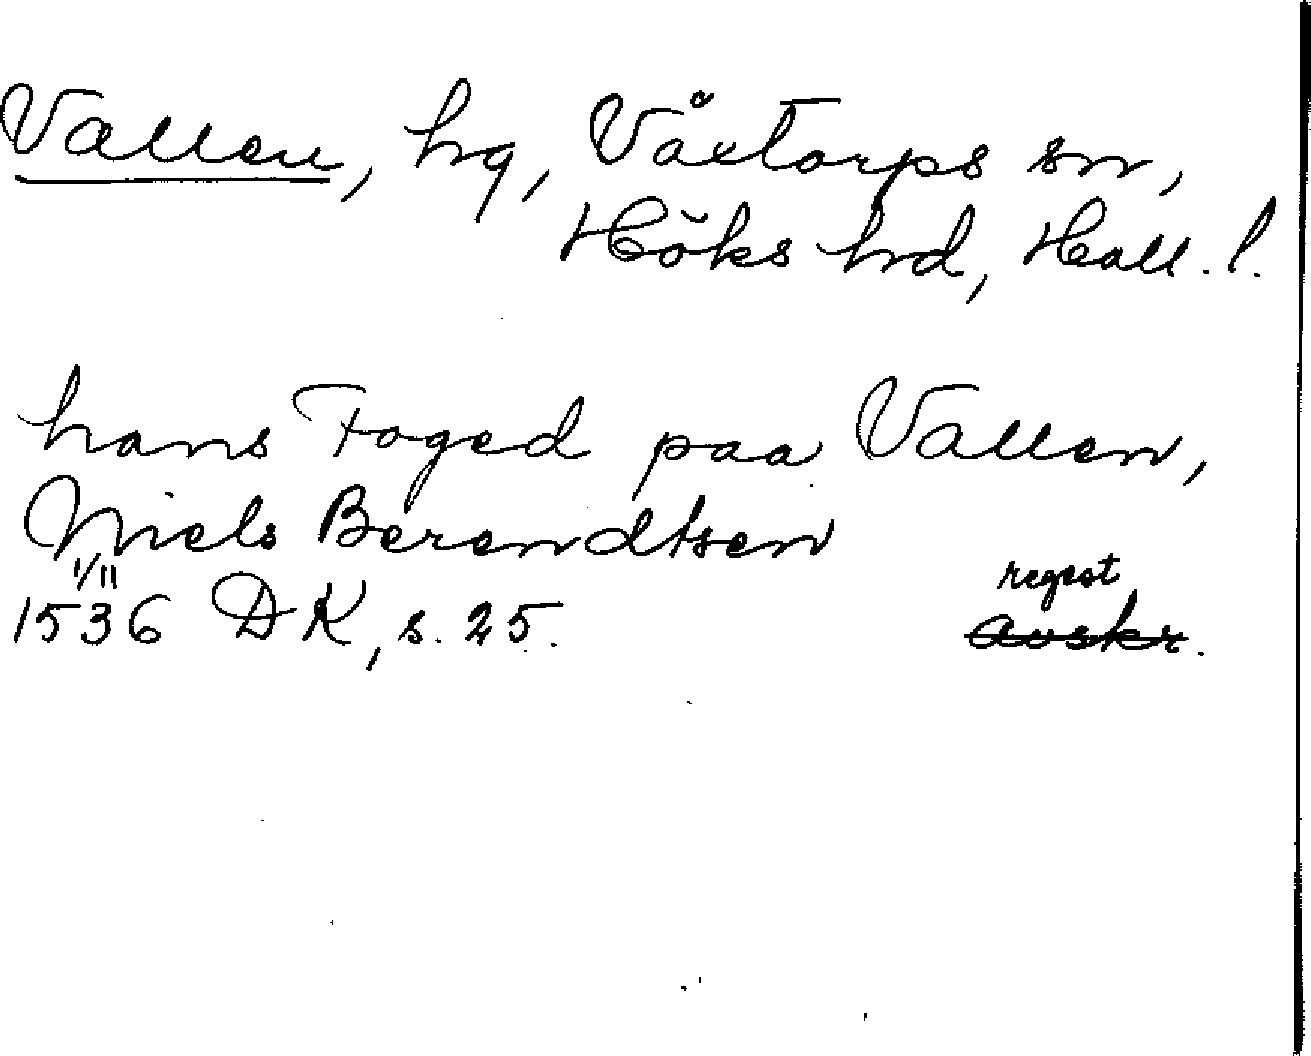 Vallen, hg, Våxtorps sn,
Höks hrd, Hall. l.
hans Foged paa Vallen,
Niels Berendtsen
1/11
1536 DK, s. 25.
regest
avskr.